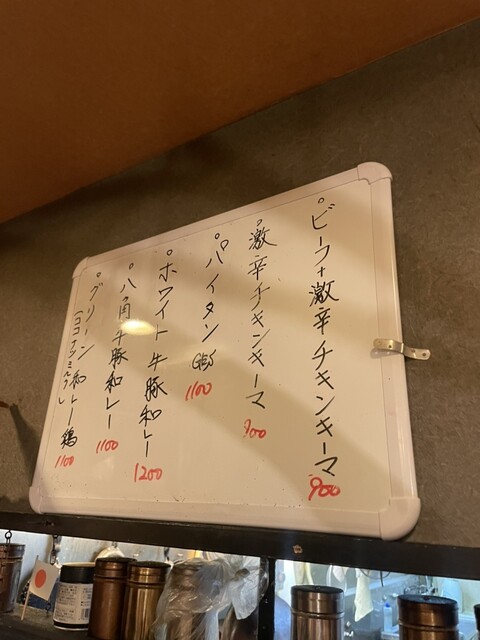 °ビーフ+激辛チキンキーマ
900
°激辛チキンキーマ
900
°パイタン
1100
°ホワイト牛豚和レー
1200
°八角牛豚和レー
1100
°グリーン和レー鶏
(ココナツミルク)
1100